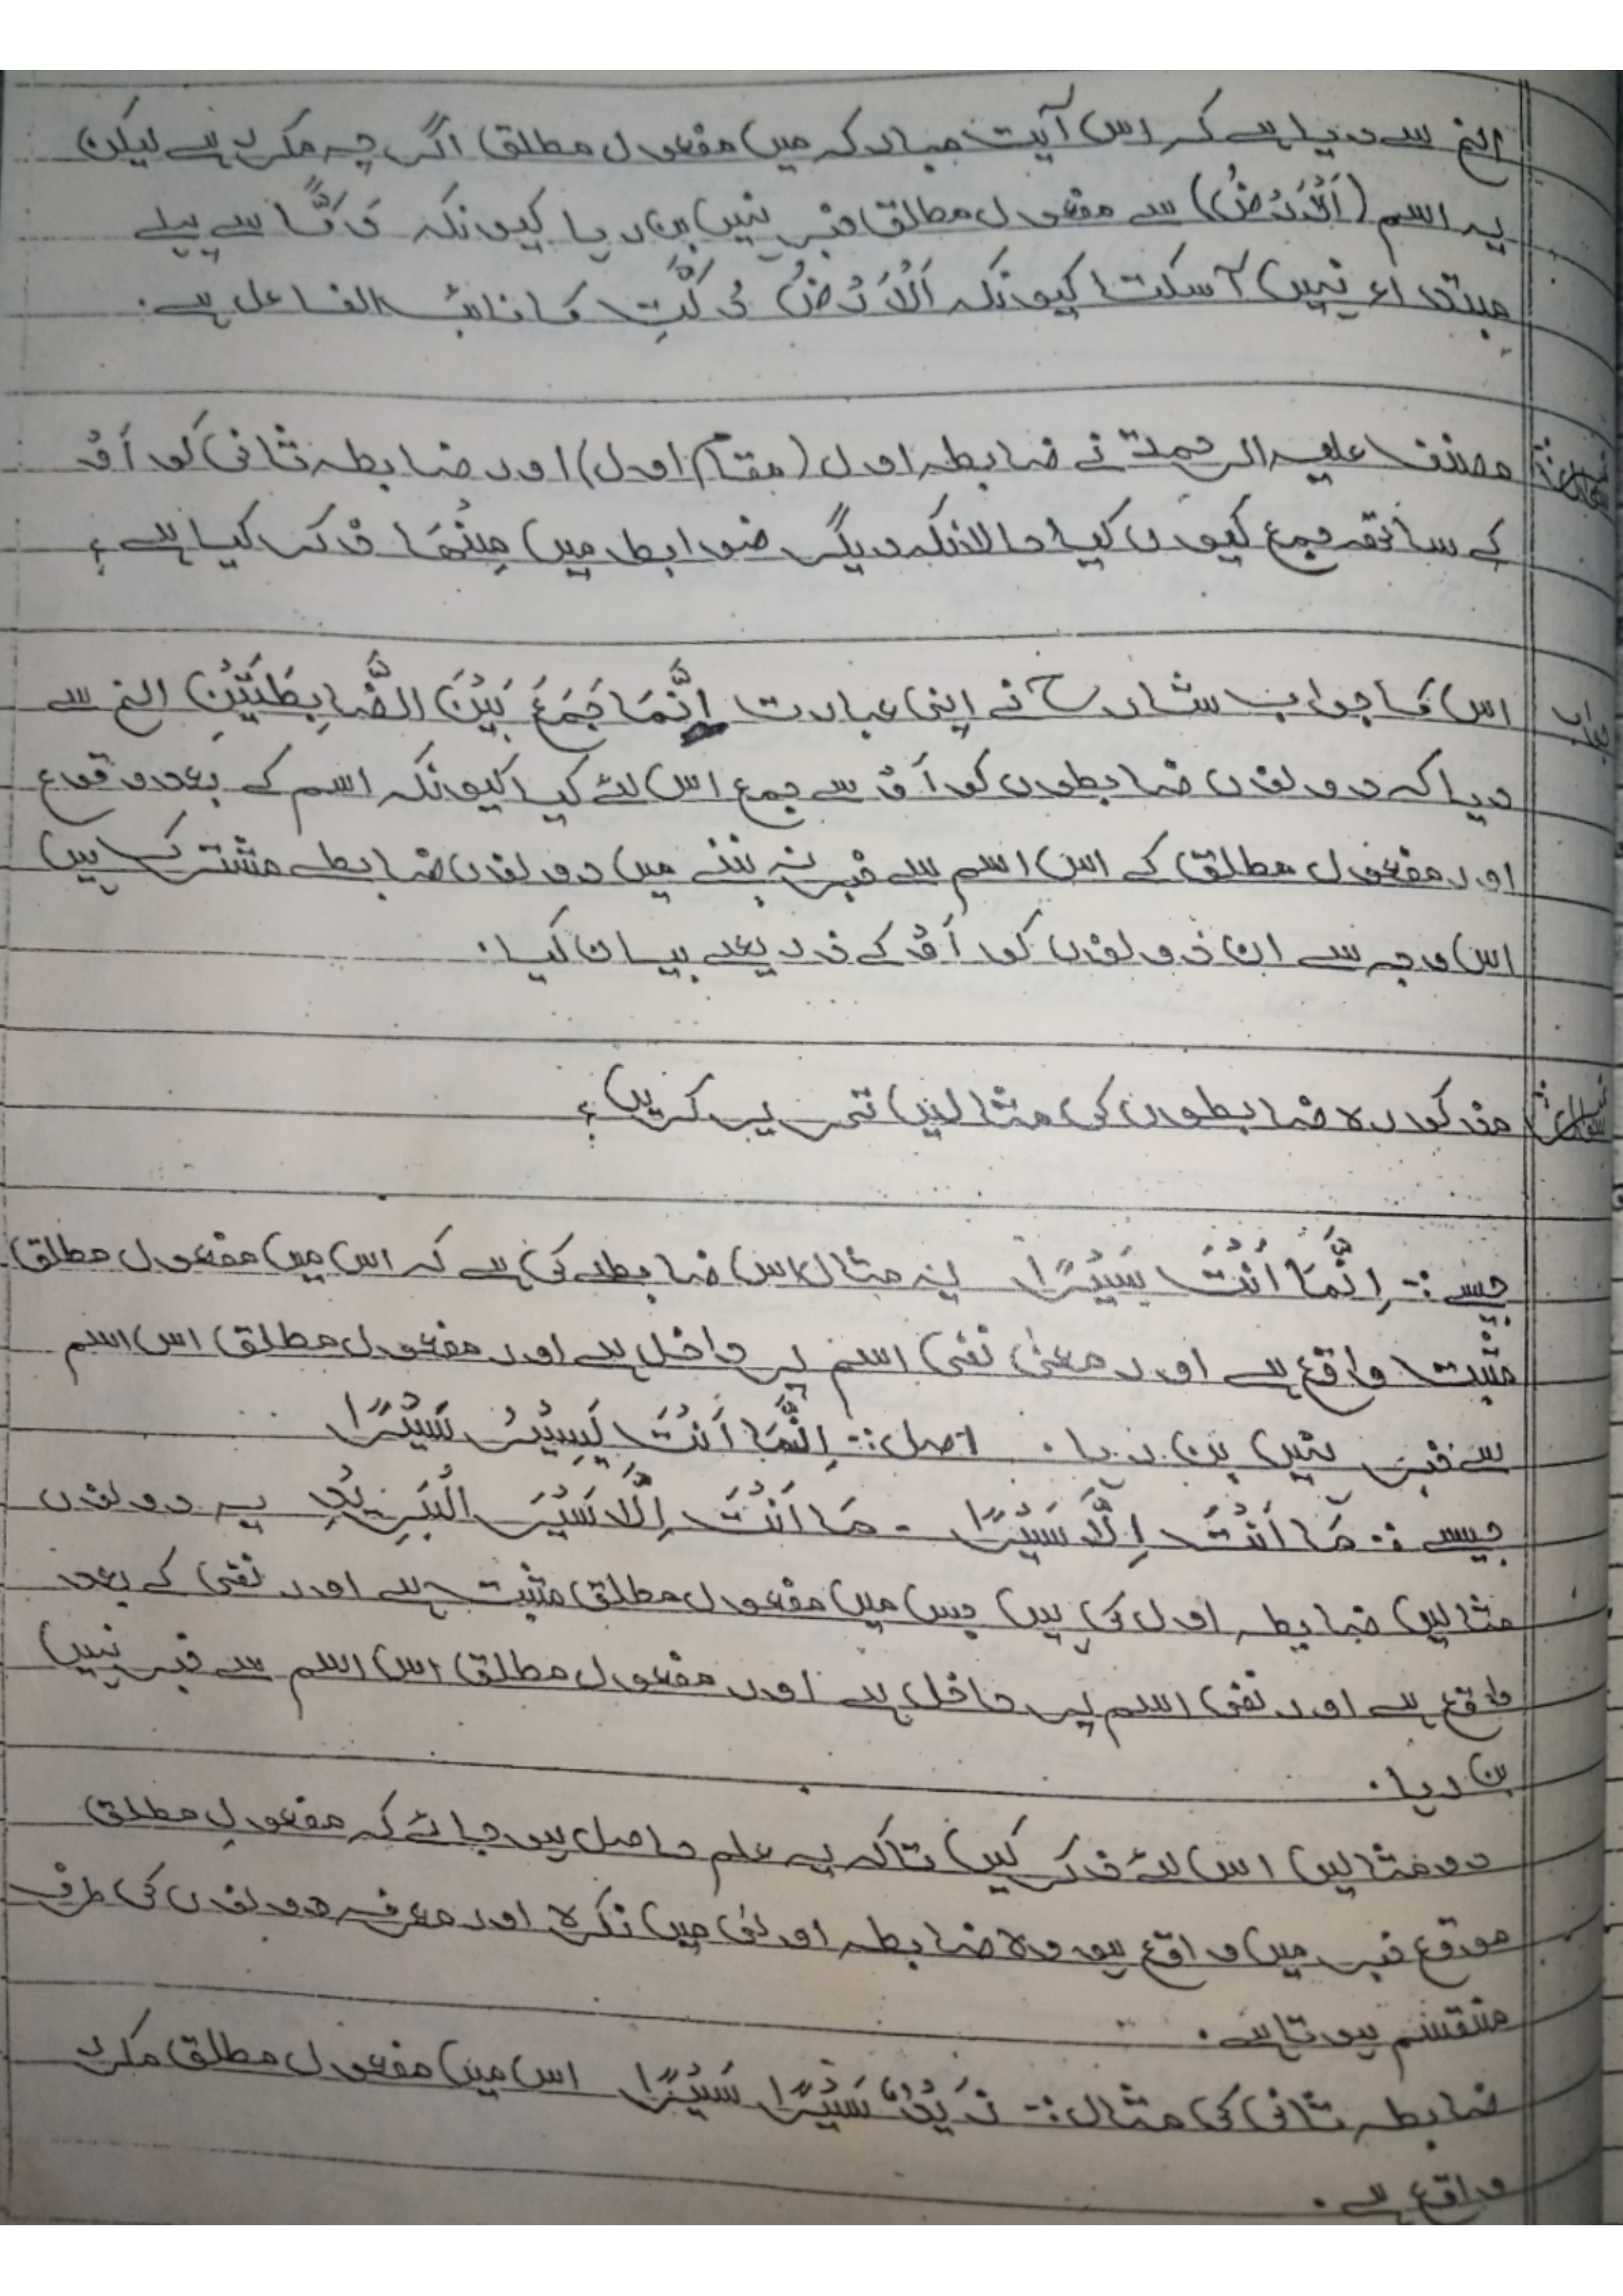 الخ سے دیا ہے کہ اس آیت مبارکہ میں مفعول مطلق اگر چہ مکرر ہے لیکن
یہ اسم (اَلْاَرْضُ) سے مفعول مطلق خبر نہیں بن رہا کیونکہ دَکًّا سے پہلے
مبتداء نہیں آ سکتا کیونکہ اَلْاَرْضُ دُکَّتِ کا نائب الفاعل ہے.
مصنف علیہ الرحمۃ نے ضابطہ اول (مقام اول) اور ضابطہ ثانی کو اَوْ
کے ساتھ جمع کیوں کیا حالانکہ دیگر ضوابط میں مِنْھَا ذکر کیا ہے؟
جواب اس کا جواب شارح نے اپنی عبارت اِنَّمَا جَمَعَ بَیْنَ الضَّابِطَتَیْنِ الخ سے
دیا کہ دونوں ضابطوں کو اَوْ سے جمع اس لئے کیا کیونکہ اسم کے بعد وقوع
اور مفعول مطلق کے اس اسم سے خبر نہ بننے میں دونوں ضابطے مشترک ہیں
اس وجہ سے ان دونوں کو اَوْ کے ذریعے بیان کیا.
مذکورہ ضابطوں کی مثالیں تحریر کریں؟
جیسے :- اِنَّمَا اَنْتَ سَیْرًا یہ مثال اس ضابطے کی ہے کہ اس میں مفعول مطلق
مثبت واقع ہے اور معنیٰ نفی اسم پر داخل ہے اور مفعول مطلق اس اسم
سے خبر نہیں بن رہا. اصل :- اِنَّمَا اَنْتَ تَسِیْرُ سَیْرًا
جیسے :- مَا اَنْتَ اِلَّا سَیْرًا - مَا اَنْتَ اِلَّا سَیْرَ الْبَرِیْدِ یہ دونوں
مثالیں ضابطہ اول کی ہیں جس میں مفعول مطلق مثبت ہے اور نفی کے بعد
واقع ہے اور نفی اسم پر داخل ہے اور مفعول مطلق اس اسم سے خبر نہیں
بن رہا.
دو مثالیں اس لئے ذکر کیں تاکہ یہ علم حاصل ہو جائے کہ مفعولِ مطلق
موقع خبر میں واقع ہو وہ ضابطہ اولیٰ میں نکرہ اور معرفہ دونوں کی طرف
منقسم ہوتا ہے.
ضابطہ ثانی کی مثال :- زَیْدٌ سَیْرًا سَیْرًا اس میں مفعول مطلق مکرر
واقع ہے.